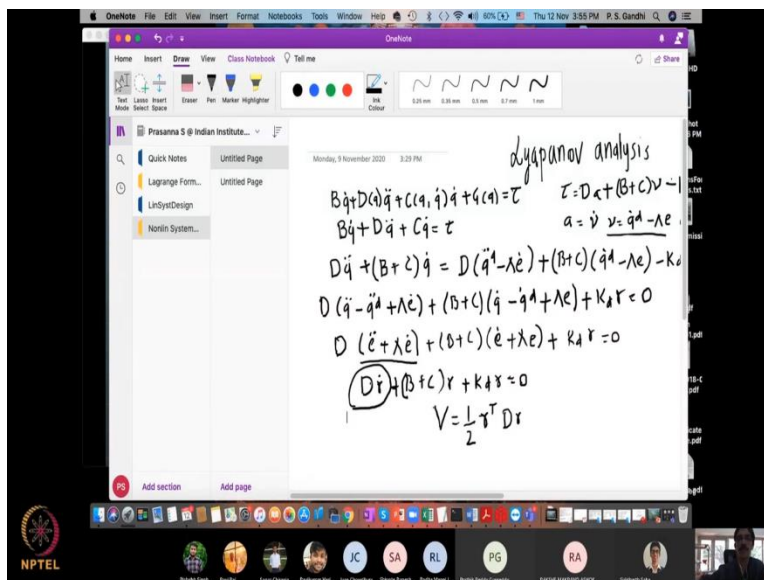 OneNote File Edit View Insert Format Notebooks Tools Window Help 60% Thu 12 Nov 3:55 PM P. S. Gandhi
OneNote
Home Insert Draw View Class Notebook Tell me Share
Text Mode Lasso Select Insert Space Eraser Pen Marker Highlighter Ink Colour 0.25 mm 0.35 mm 0.5 mm 0.7 mm 1 mm
Prasanna S @ Indian Institute...
Quick Notes
Lagrange Form...
LinSystDesign
Nonlin System...
Untitled Page
Untitled Page
Monday, 9 November 2020 3:29 PM
Lyapanov analysis
Bq̇+D(q)q̈+C(q,q̇)q̇+G(q)=τ τ=Da+(B+C)ν-
Bq̇+Dq̈+Cq̇=τ a=ν̇ ν=q̇ᵈ-Λe
Dq̈+(B+C)q̇=D(q̈ᵈ-Λė)+(B+C)(q̇ᵈ-Λe)-Kd
D(q̈-q̈ᵈ+Λė)+(B+C)(q̇-q̇ᵈ+Λe)+Kdr=0
D(ë+Λė)+(B+C)(ė+Λe)+Kdr=0
Dṙ+(B+C)r+Kdr=0
V=1/2 rᵀDr
PS Add section Add page
NPTEL
JC SA RL PG RA